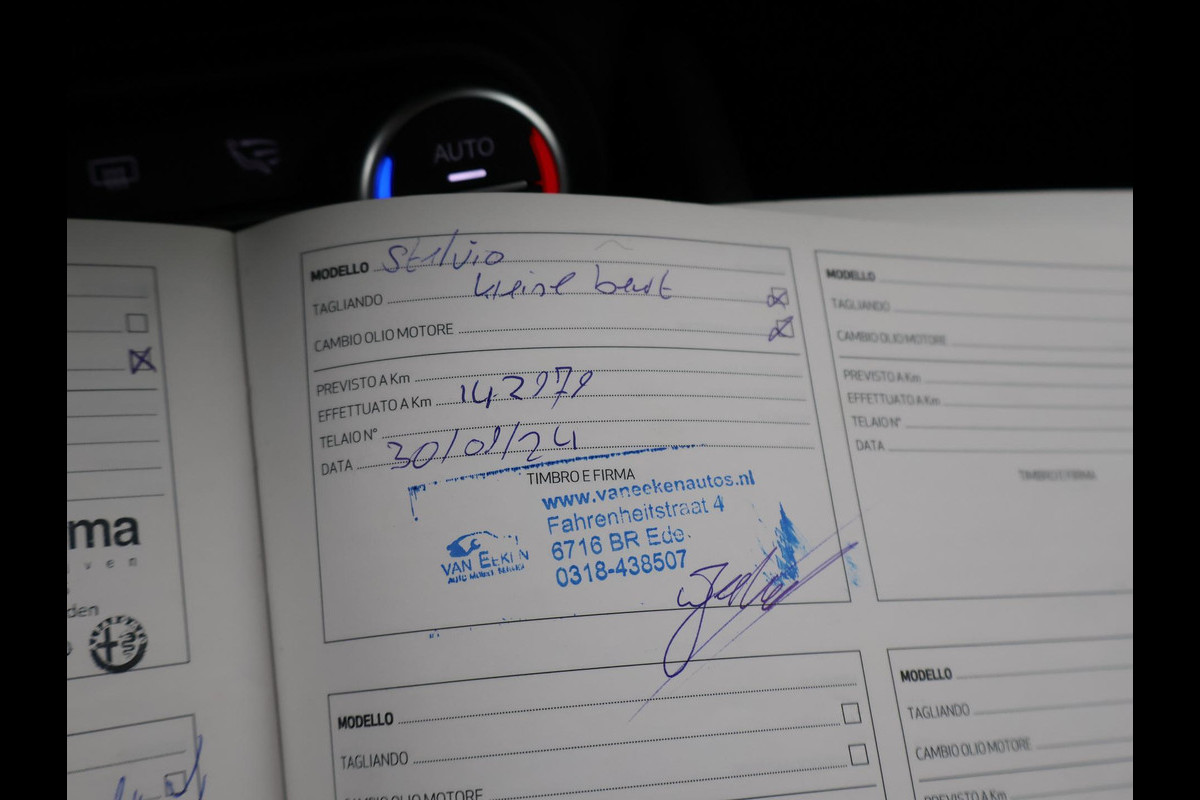 AUTO
MODELLO Stelvio
TAGLIANDO kleine beurt
CAMBIO OLIO MOTORE
PREVISTO A Km
EFFETTUATO A Km 142979
TELAIO N°
DATA 30/01/24
TIMBRO E FIRMA
www.vaneekenautos.nl
Fahrenheitstraat 4
6716 BR Ede
0318-438507
VAN EEKEN
MODELLO
TAGLIANDO
CAMBIO OLIO MOTORE
MODELLO
TAGLIANDO
CAMBIO OLIO MOTORE
PREVISTO A Km
EFFETTUATO A Km
TELAIO N°
DATA
TIMBRO E FIRMA
MODELLO
TAGLIANDO
CAMBIO OLIO MOTORE
PREVISTO A Km
ma
ven
den